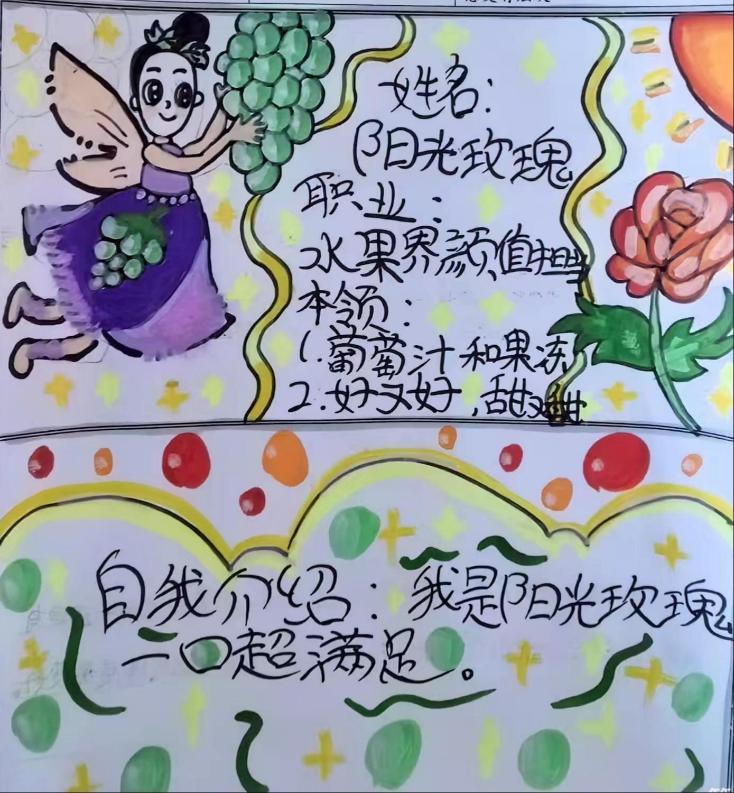 姓名：
阳光玫瑰
职业：
水果界颜值担当
本领：
1.葡萄汁和果冻
2.好又好，甜又甜
自我介绍：我是阳光玫瑰
一口超满足。